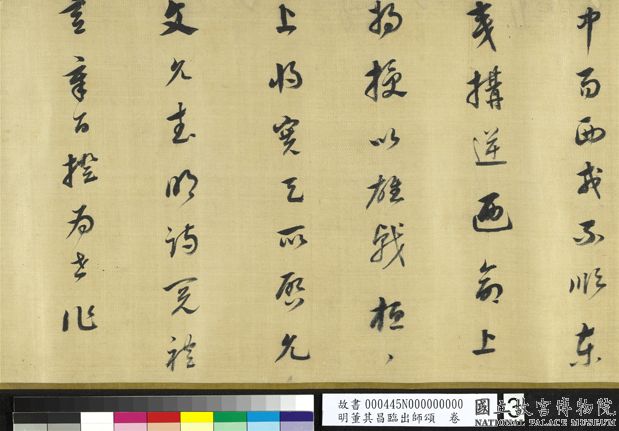 中易西戎不順東
夷搆逆迺命上
將授以雄戟桓〻
上將寔天所啓允
文允武明詩閱禮
憲章百揆為世作
故書 000445N000000000
明董其昌臨出師頌 卷
3
國立故宮博物院
NATIONAL PALACE MUSEUM